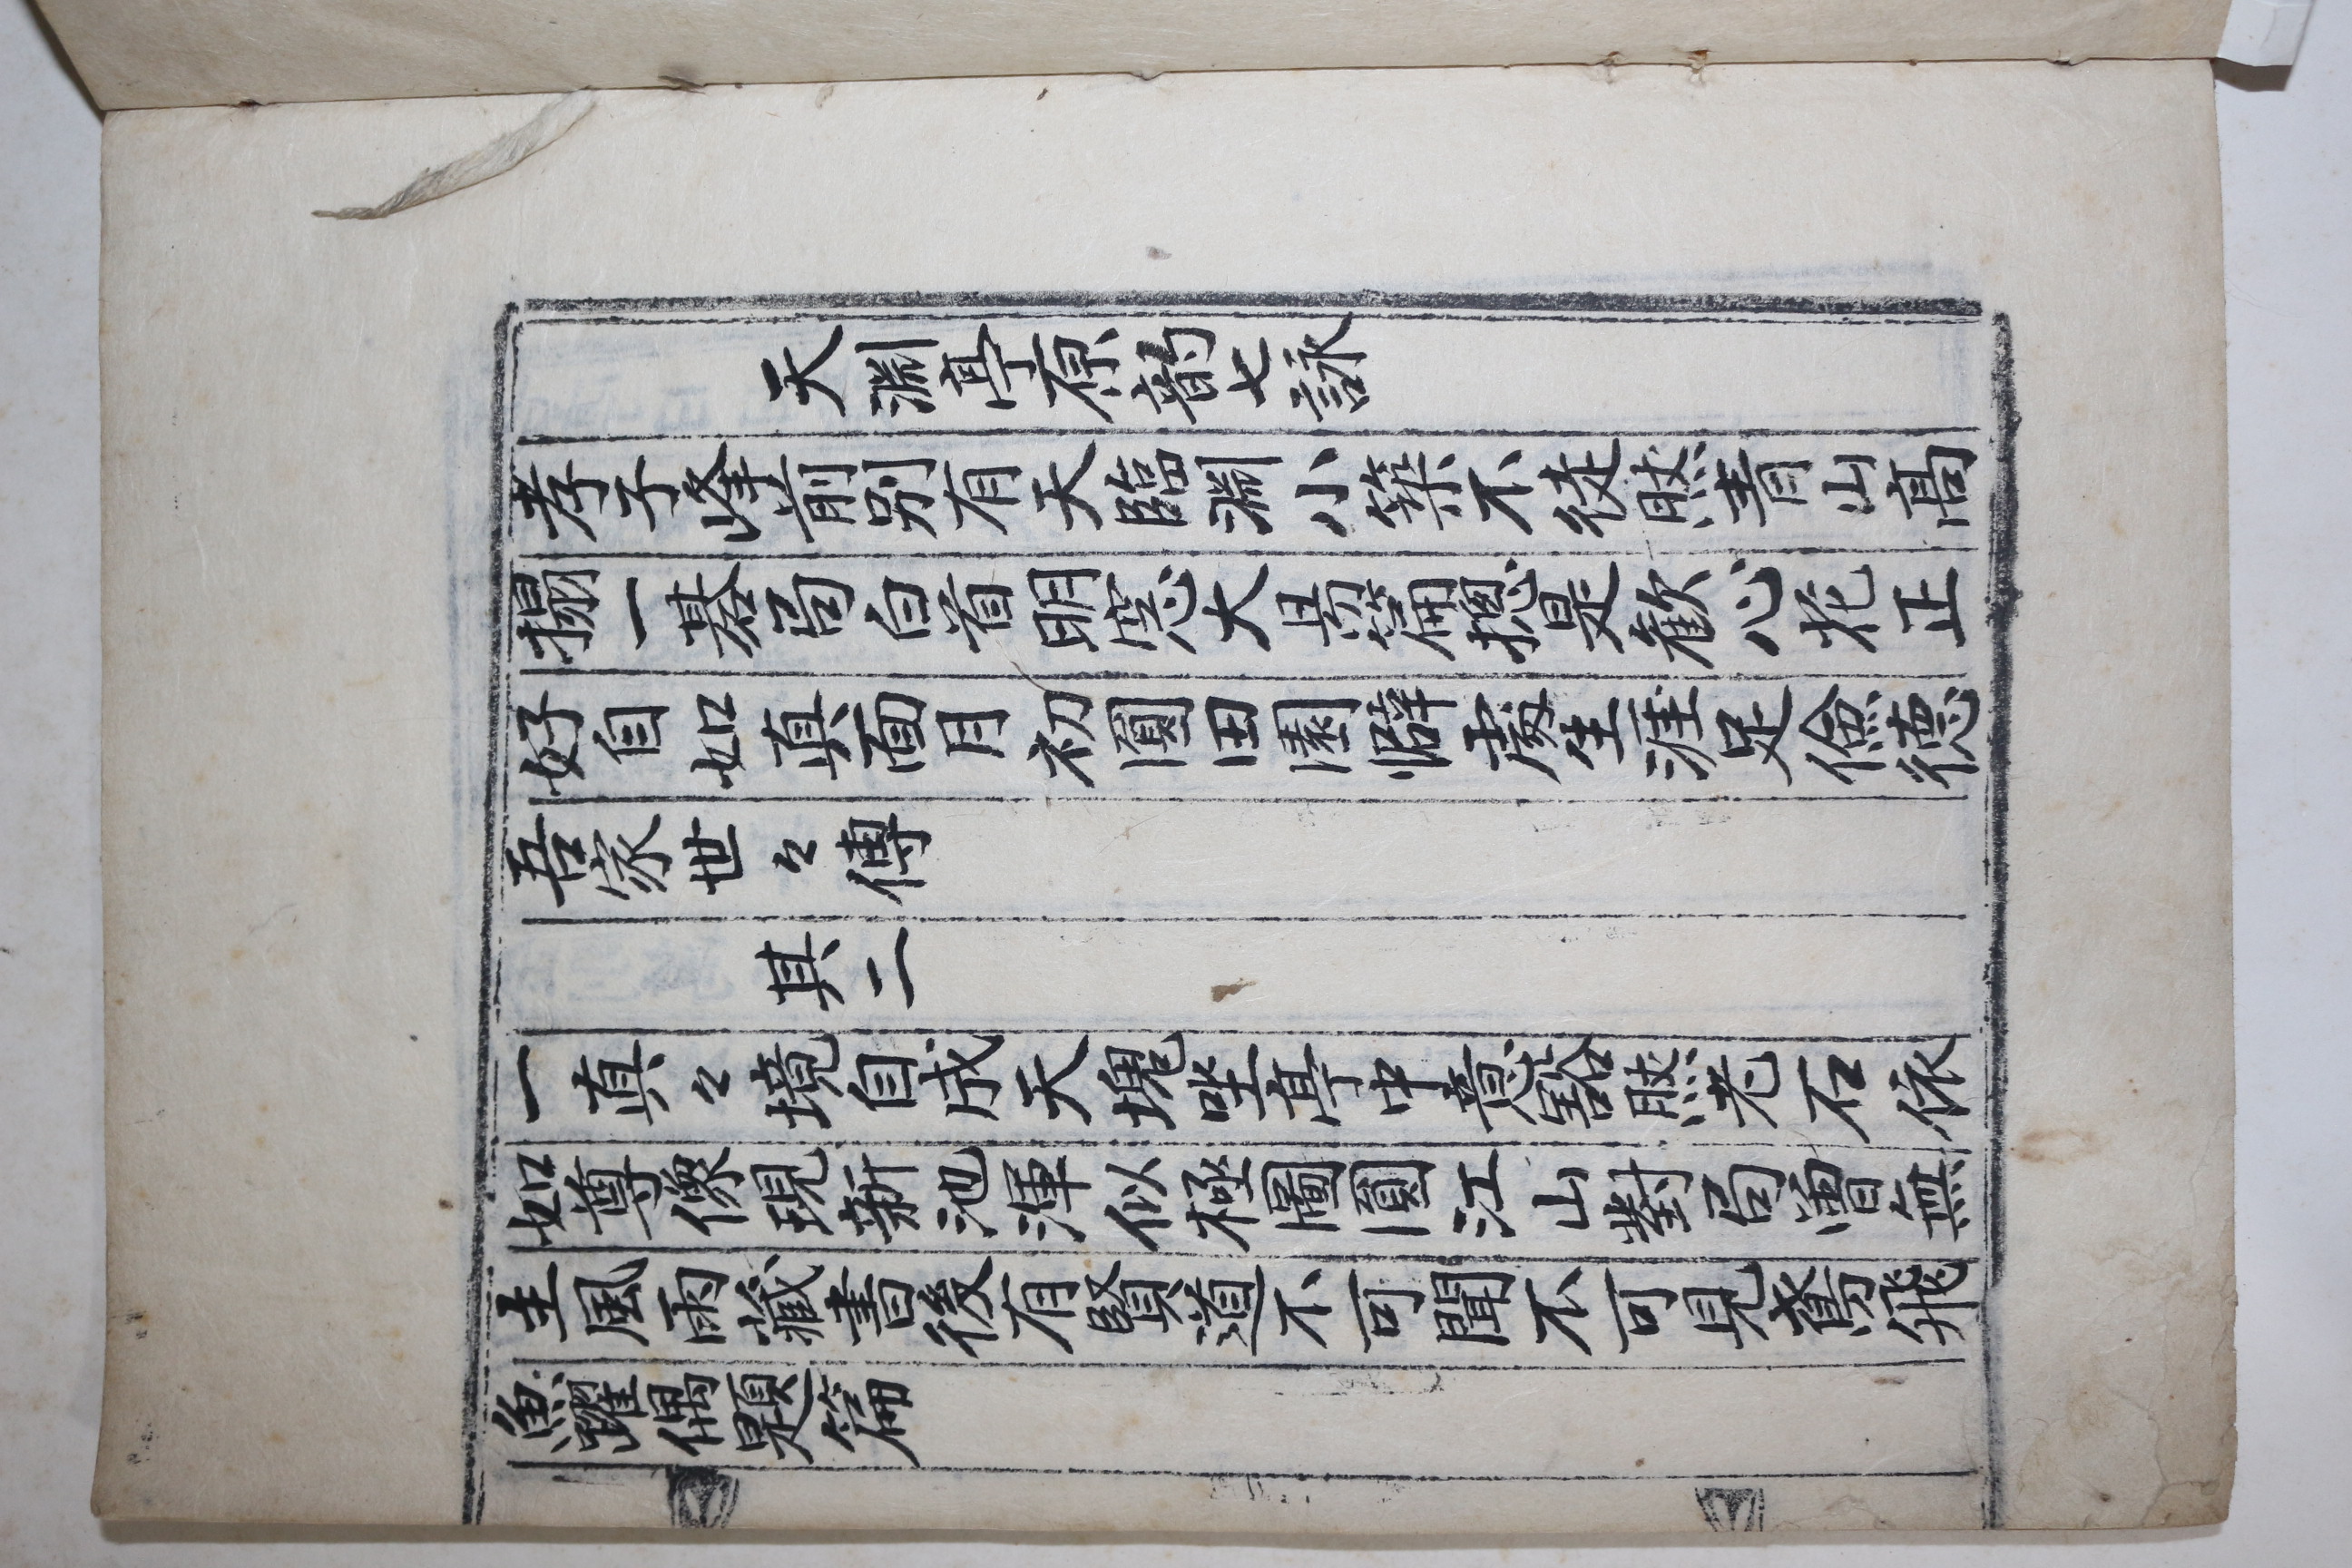 天淵亭原韵七詠
孝子峰前別有天臨淵小築不徒然青山高
搨一碁局白首明窓大易篇摠是歡心花正
好自如真面月初圓田園懈處生涯足儉德
吾家世々傳
其二
一真々境自成天塊坐亭中意豁然老石依
如尊像現新池渾似極圖圓江山對局曾無
主風雨藏書後有賢道不可聞不可見鳶飛
魚躍偶題篇